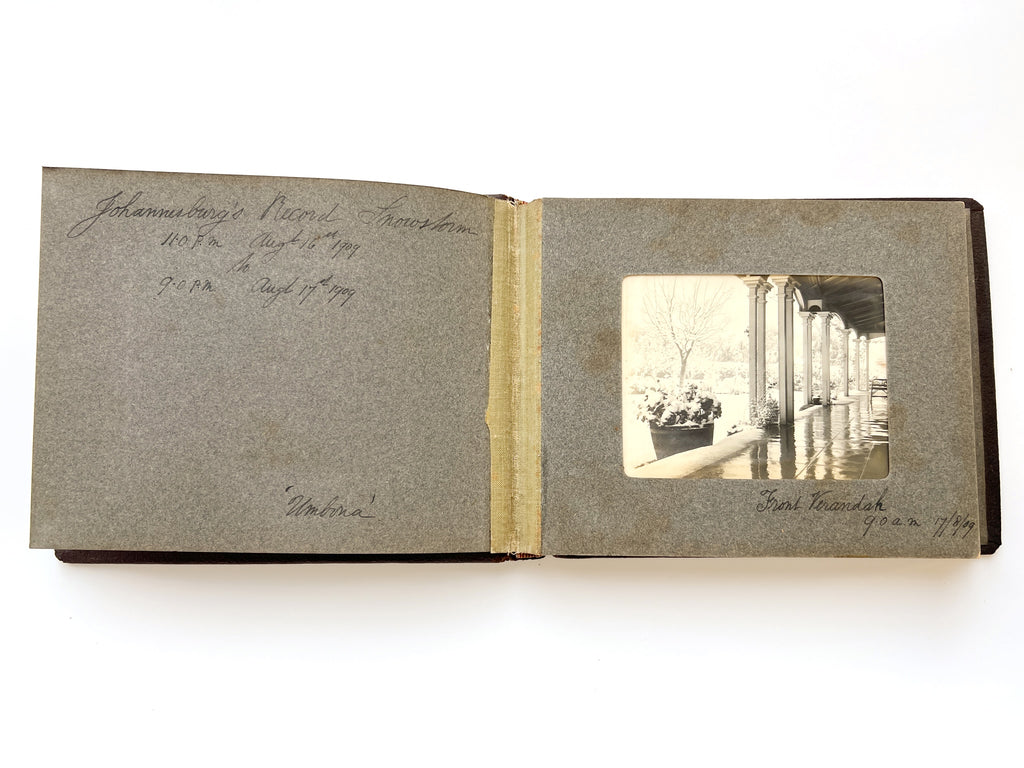 Johannesburg's Record Snowstorm
11.0 P.m Augt 16th 1909
to
9.0 P.m Augt 17th 1909
'Umbona'
Front Verandah
9.0 a m 17/8/09